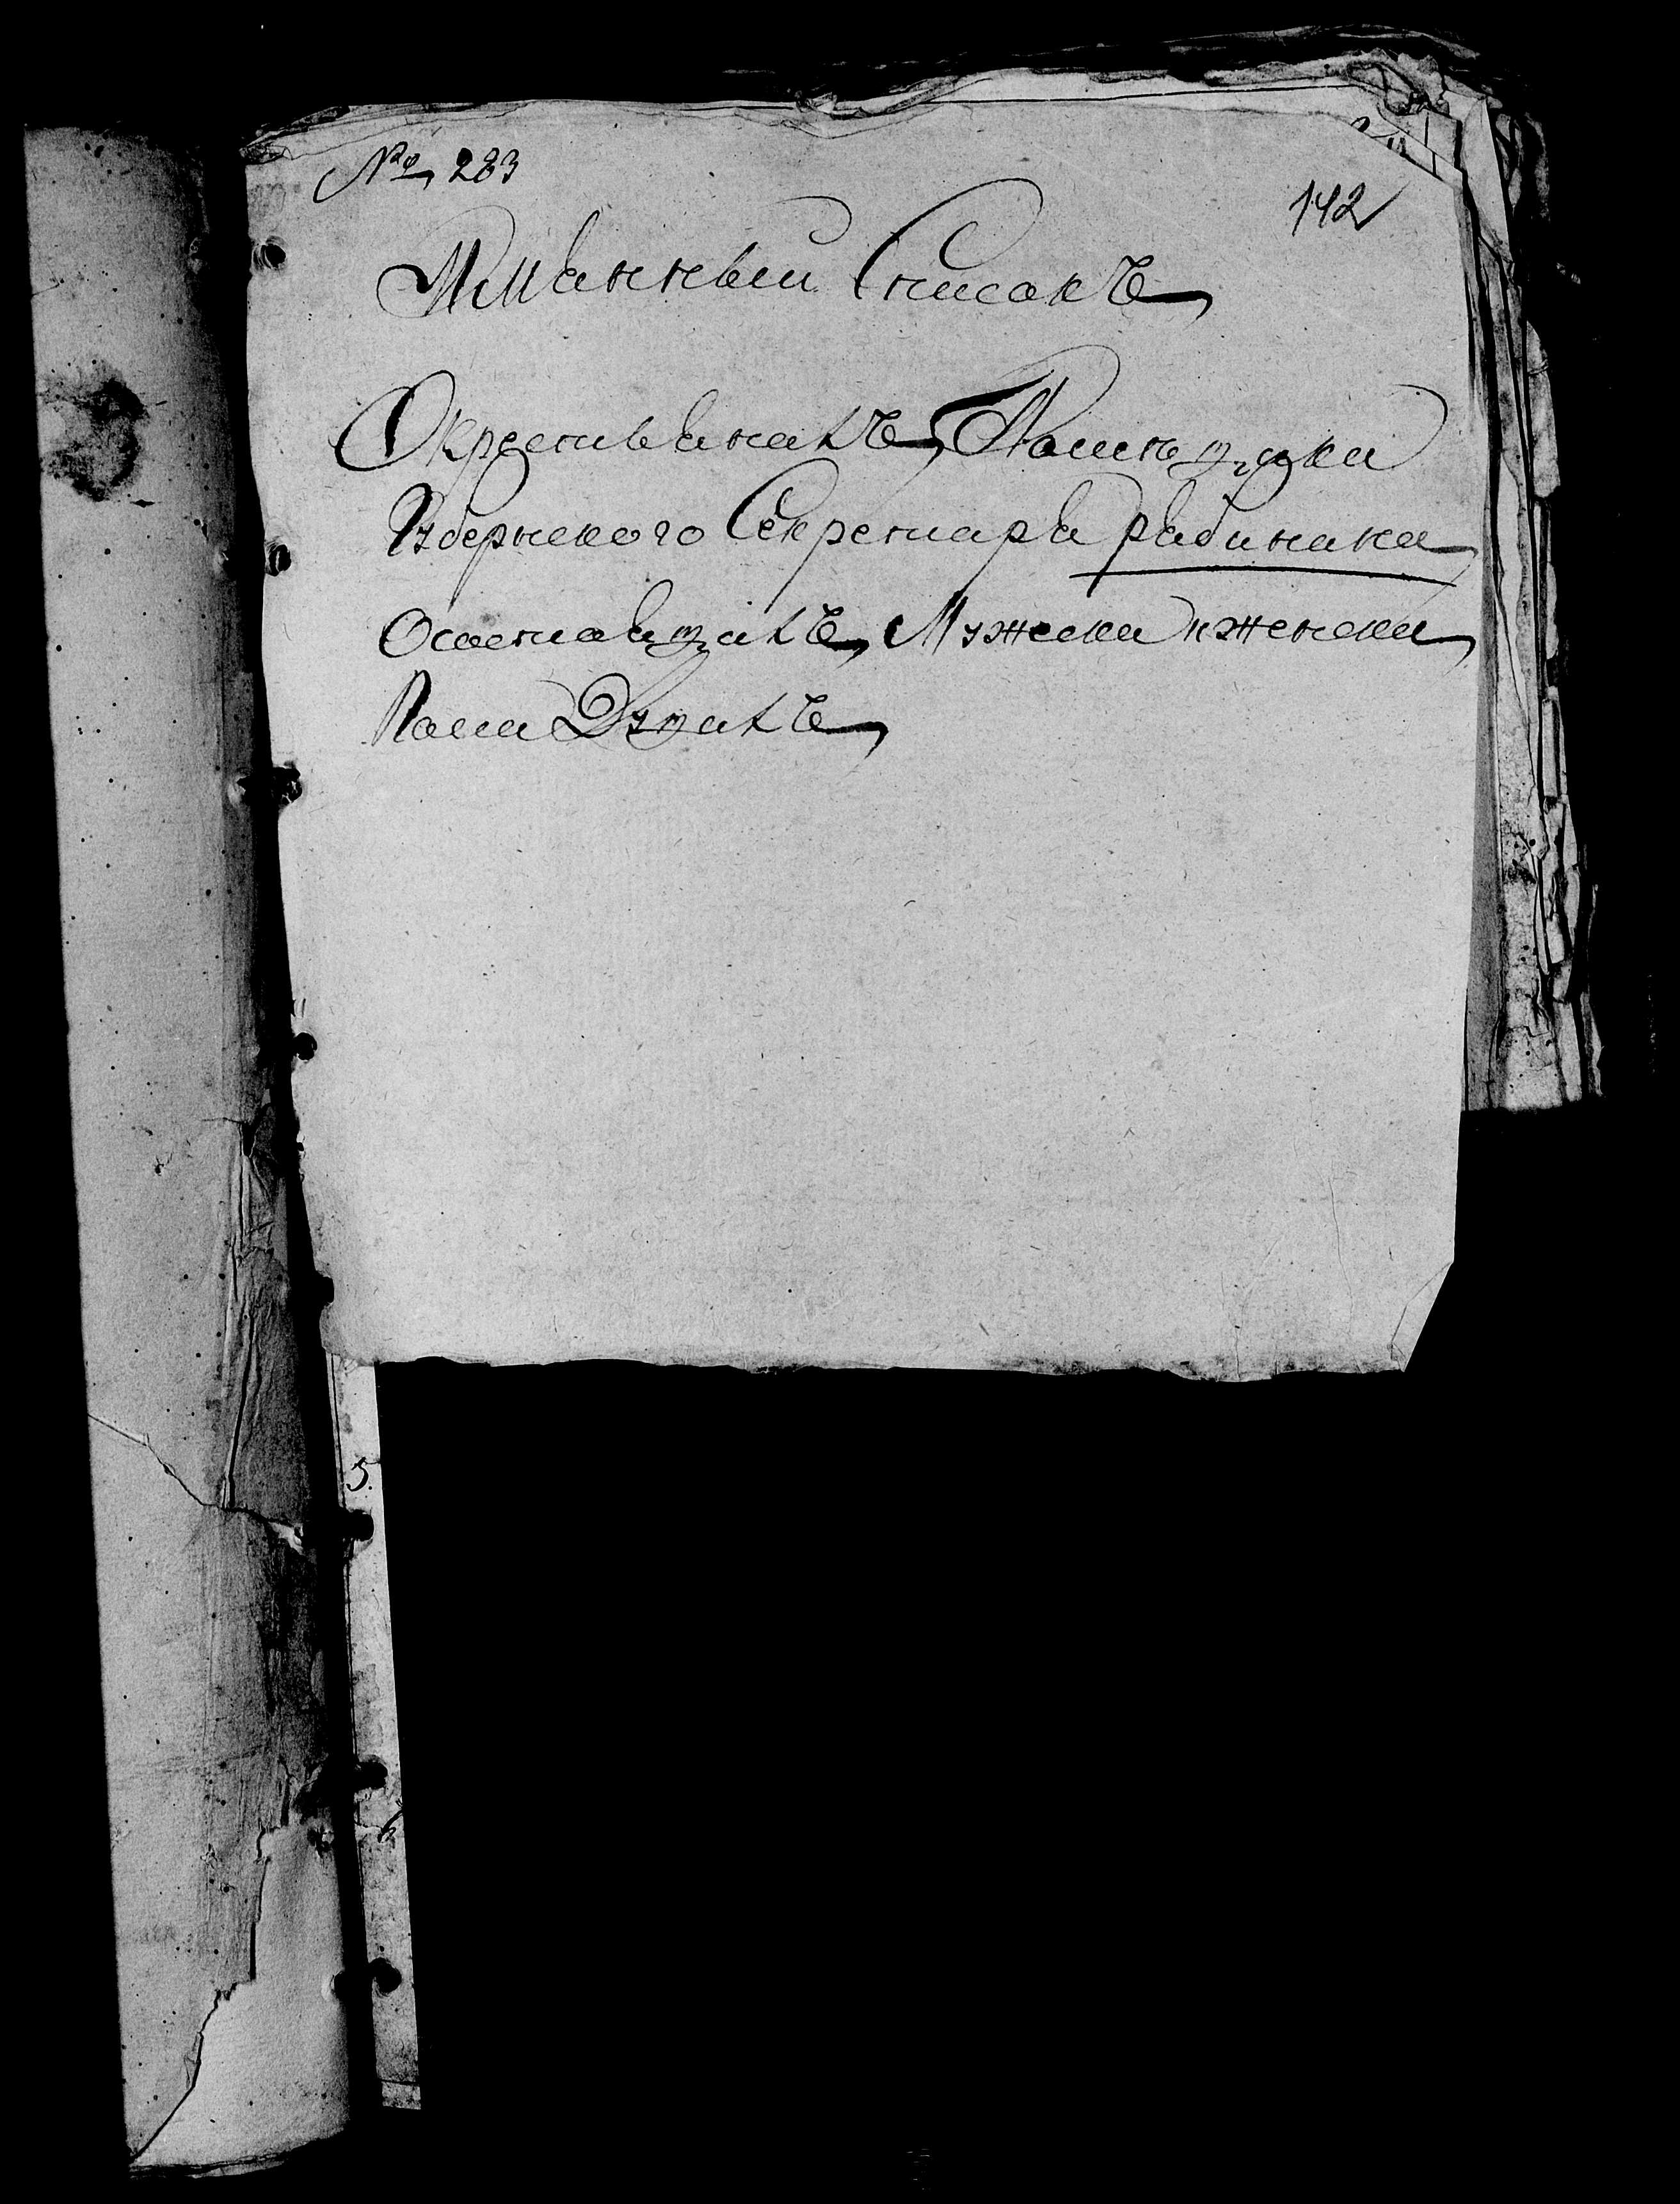 № 283
142
Имянный Списокъ
Окрестьянахъ Помѣщики
Губернского Секретаря Рябинина
Осостоящихъ Мужеска иженска
Пола Душахъ
5.